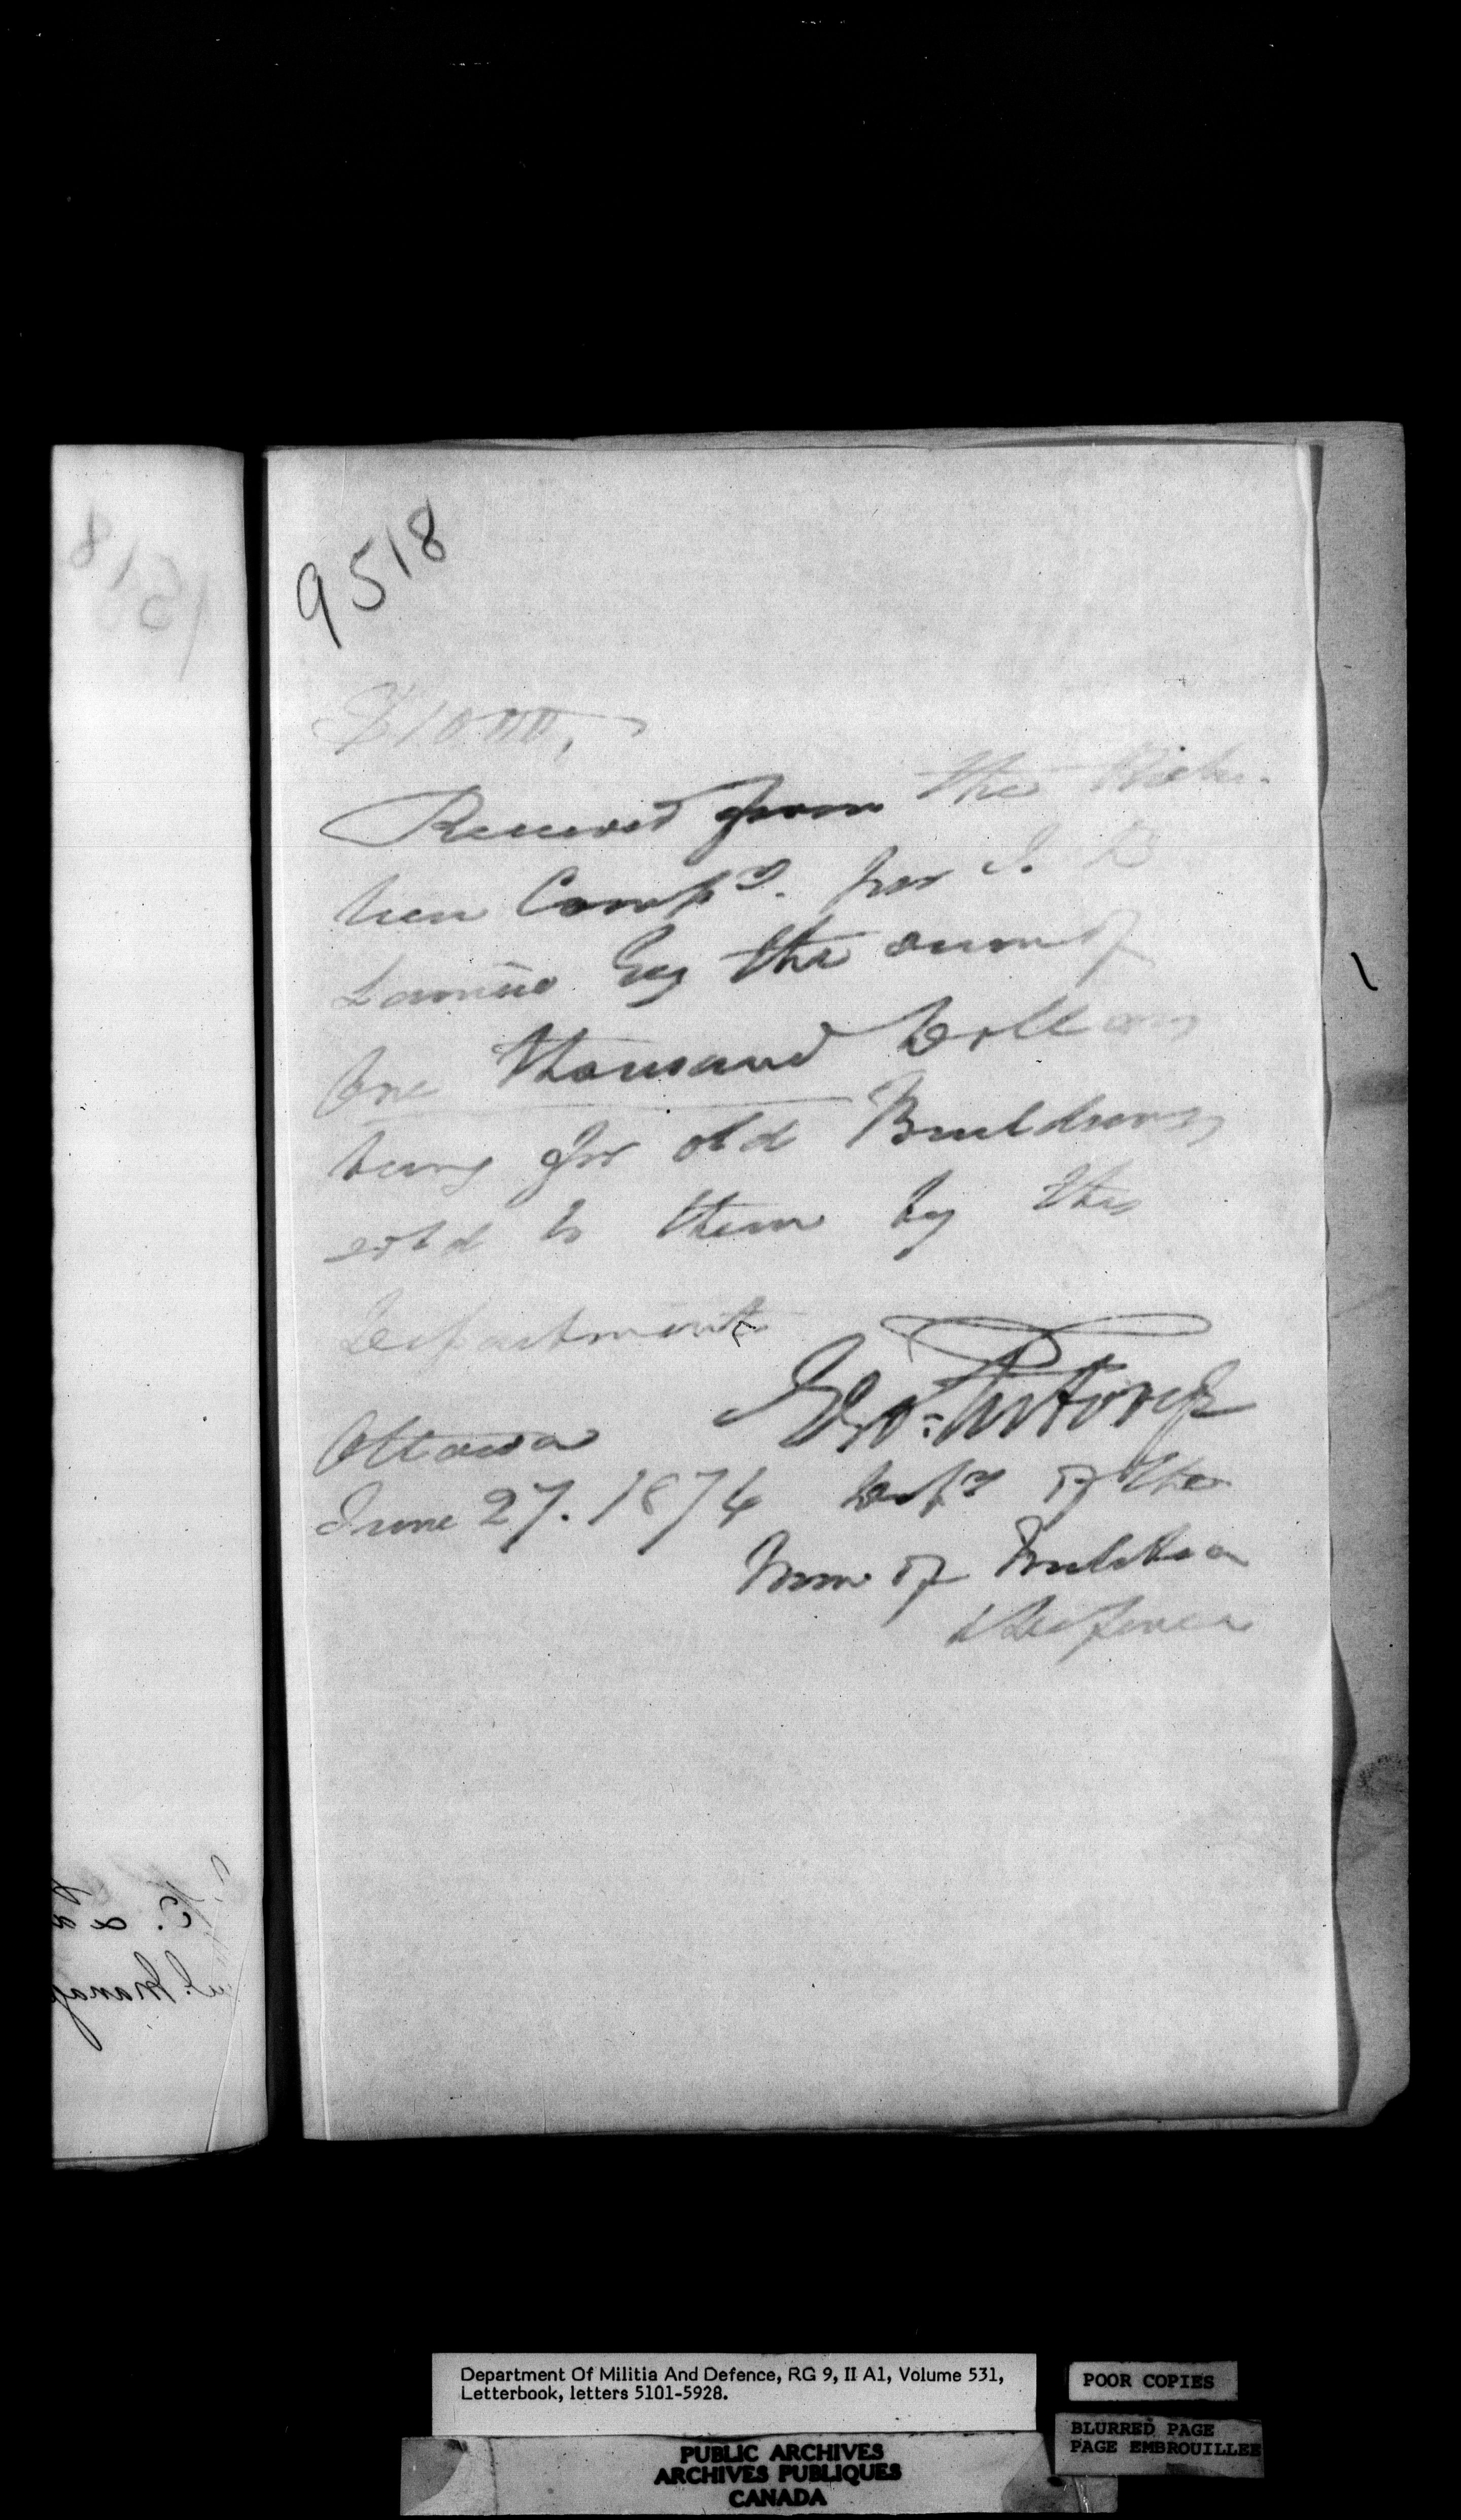 9518
$1000,
Received from the Riche-
lieu Comp^y. per J. B
Lamère Esq the sum of
One thousand Dollars
being for old Buildings
sold to them by this
Department
Ottawa
June 27. 1874 Dep^y of the
Min of Militia
& Defence
Department Of Militia And Defence, RG 9, II A1, Volume 531,
Letterbook, letters 5101-5928.
POOR COPIES
BLURRED PAGE
PAGE EMBROUILLEE
PUBLIC ARCHIVES
ARCHIVES PUBLIQUES
CANADA